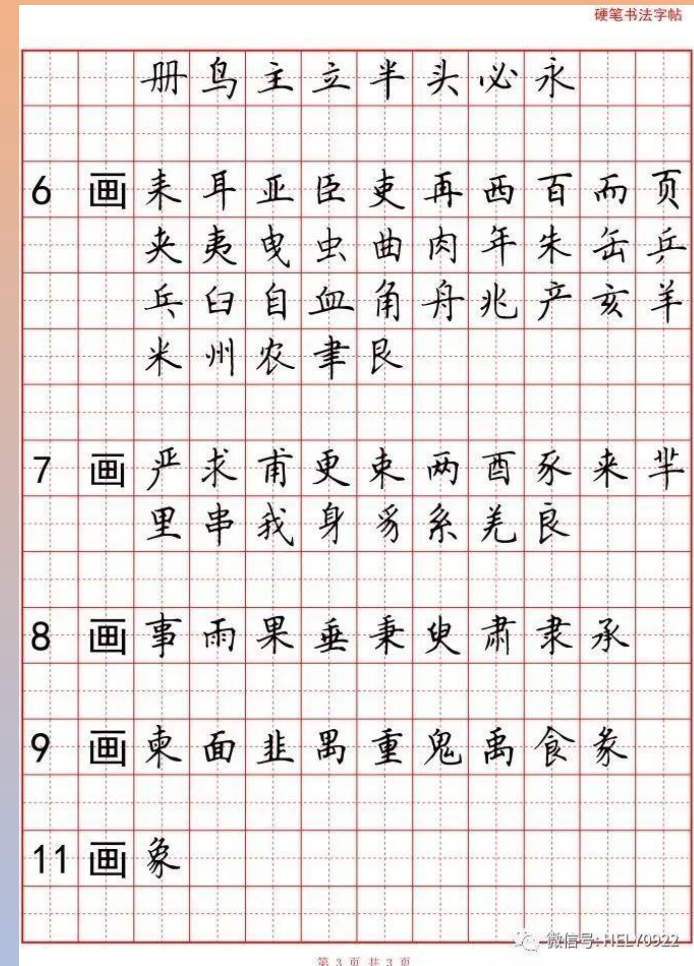 硬笔书法字帖
册鸟主立半头必永
6画耒耳亚臣吏再西百而页
夹夷曳虫曲肉年朱缶乒
乓臼自血角舟兆产亥羊
米州农聿艮
7画严求甫更束两酉豕来芈
里串我身豸系羌良
8画事雨果垂秉臾肃隶承
9画柬面韭禺重鬼禹食彖
11画象
微信号: HELY0922
第 3 页 共 3 页